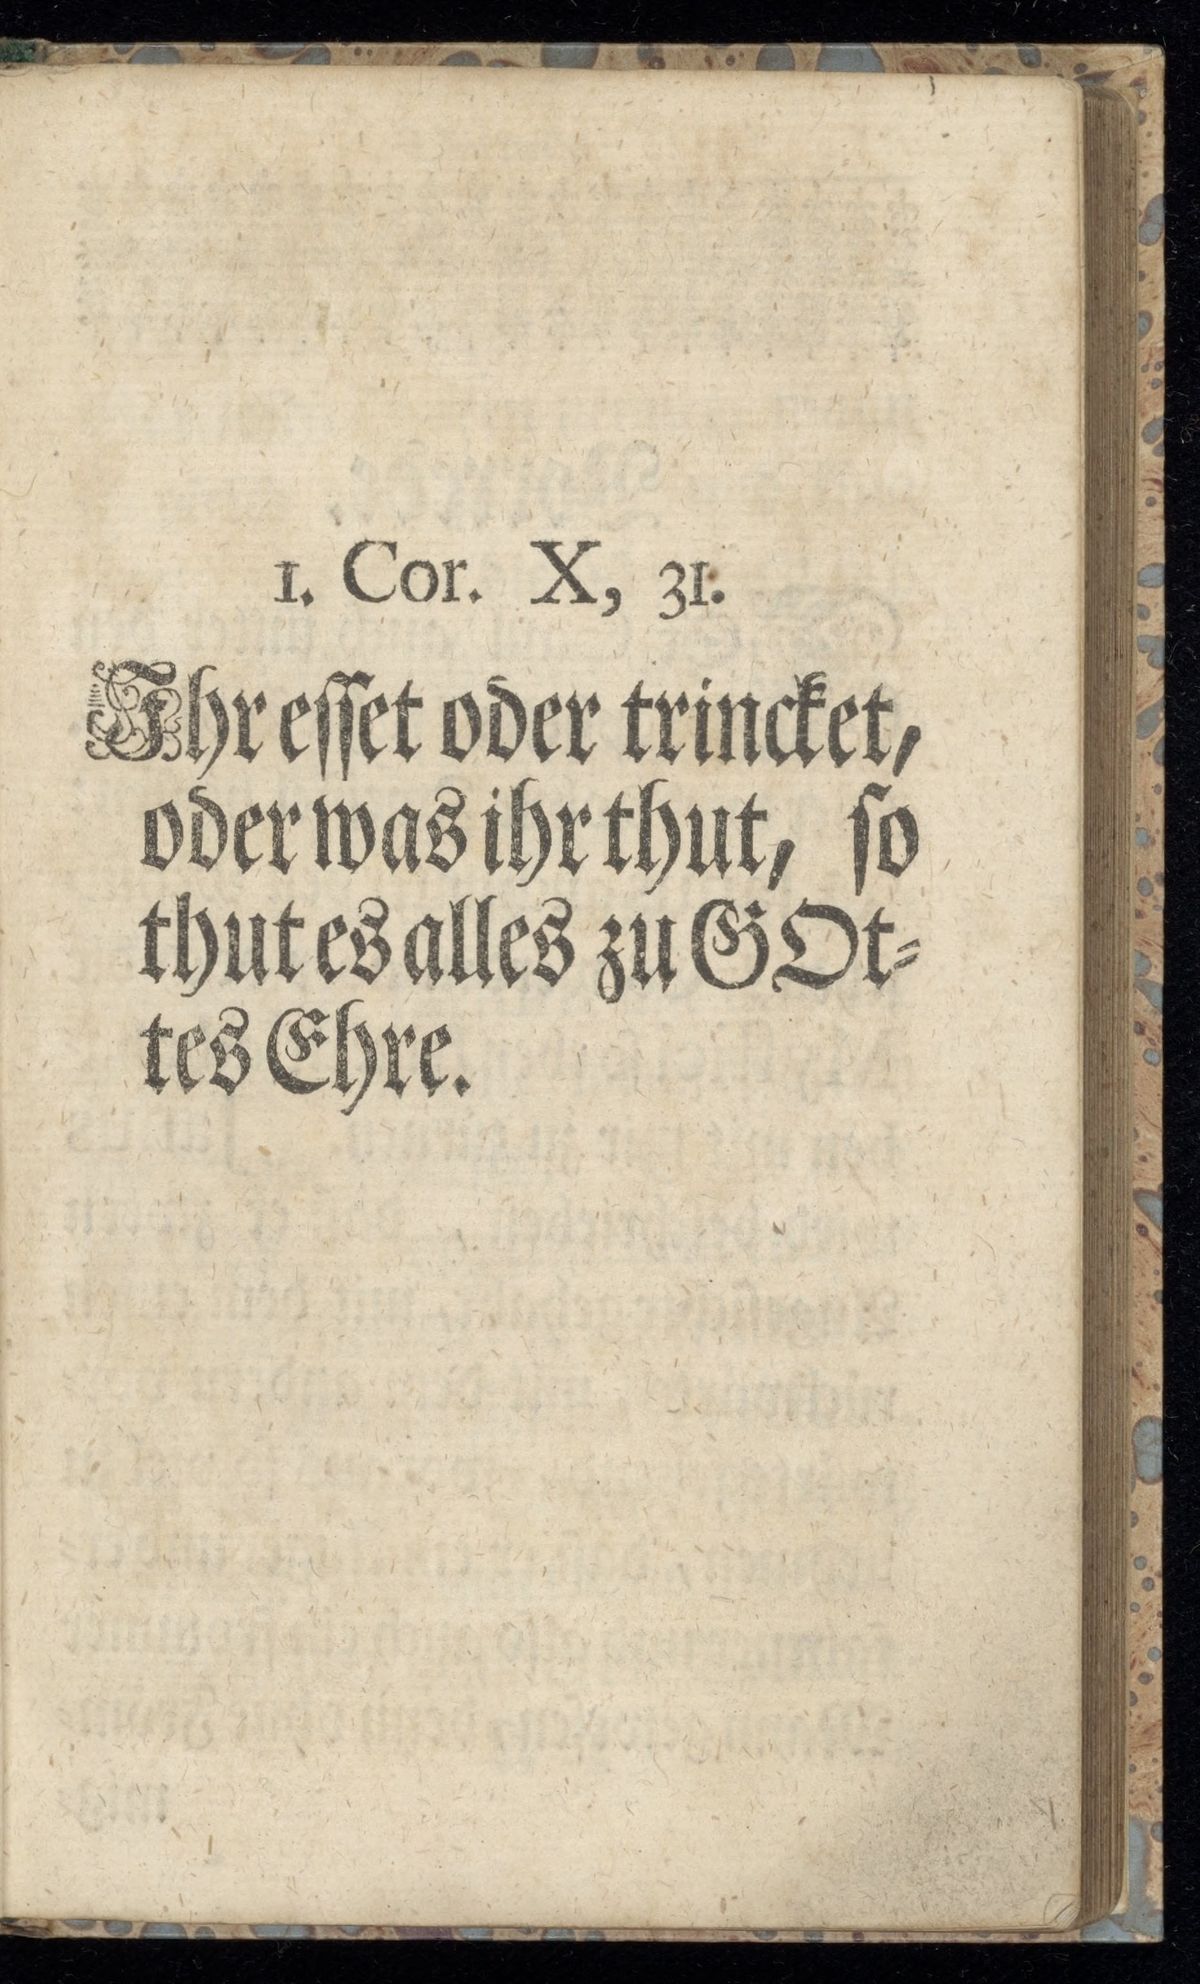 1. Cor. X, 31.
Ihr esset oder trincket,
oder was ihr thut, so
thut es alles zu GOt-
tes Ehre.